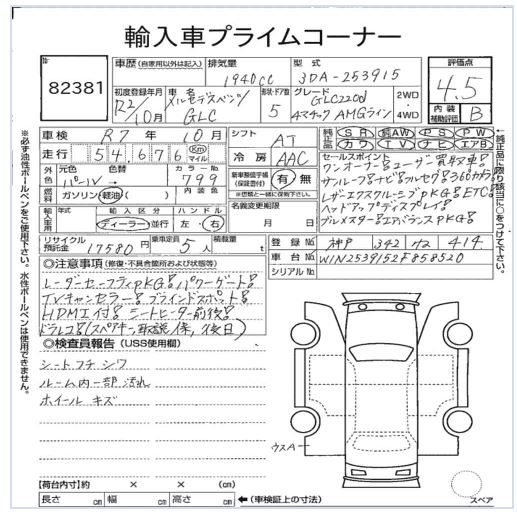 輸入車プライムコーナー
No. 82381
車歴 (自家用以外は記入) 排気量 1940cc 型式 3DA-253915
評価点 4.5
内装補助評価 B
初度登録年月 R2/10月 車名 メルセデスベンツ GLC
形状・ドア数 5 グレード GLC220d 4マチック AMGライン 2WD・4WD
車検 R7年10月 シフト AT
走行 54,676 Km マイル 冷房 AAC
外色 元色 パール 色替 → カラーNo. 799 内装色
燃料 ガソリン 軽油
新車整備手帳(保証書付) 有 無
※価格と一緒に保険下さい。
輸入車用 年式 輸入区分 ディーラー 並行 ハンドル 左・右
名義変更期限 月 日
リサイクル預託金 17580円 乗車定員 5人 積載量 t
純正品 SR AW PS PW カワ TV ナビ エアB
セールスポイント
ワンオーナー!ユーザー買取車!
サンルーフ!ナビ!フルセグ!360カメラ!
レザーエクスクルーシブPKG!ETC!
ヘッドアップディスプレイ!
ブルメスター!エアバランスPKG!
登録No. 神戸 342 414
車台No. W1N2539152F858520
シリアルNo.
◎注意事項 (修復・不具合箇所および状態等)
レーダーセーフティPKG!パワーゲート!
TVキャンセラー!ブラインドスポット!
HDMI付!シートヒーター前後!
ドラレコ!(スペアキー、取説、後日)
◎検査員報告 (USS使用欄)
シートフチ シワ
ルーム内一部 汚れ
ホイール キズ
ウスA
【荷台内寸】 約 × × (cm)
長さ cm 幅 cm 高さ cm ←(車検証上の寸法)
スペア
※必ず油性ボールペンをご使用下さい。水性ボールペンは使用できません。
※純正品に限り該当に○をつけて下さい。